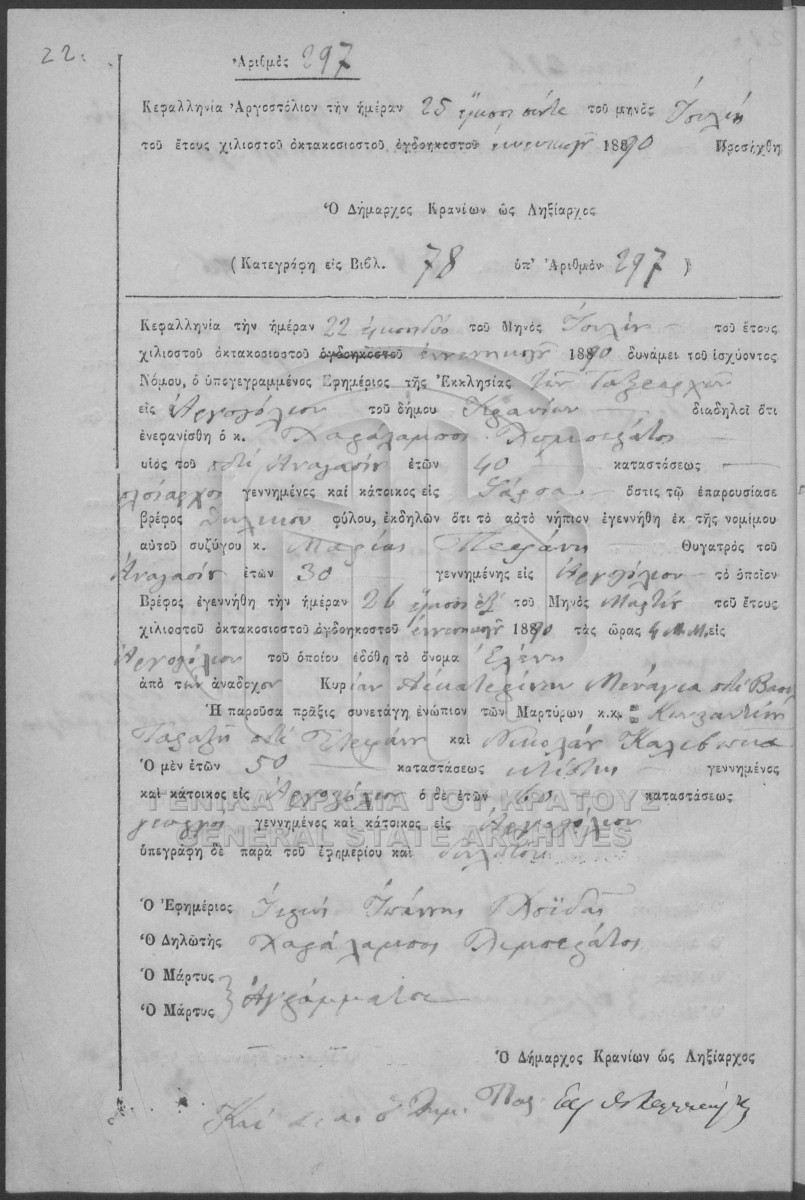 22.
Ἀριθμὸς 297
Κεφαλληνία Ἀργοστόλιον τὴν ἡμέραν 25 εἴκοσι πέντε τοῦ μηνὸς Ἰουλίου
τοῦ ἔτους χιλιοστοῦ ὀκτακοσιοστοῦ ὀγδοηκοστοῦ ἐννενηκοστοῦ 1890 Προσήχθη
Ὁ Δήμαρχος Κρανίων ὡς Ληξίαρχος
(Κατεγράφη εἰς Βιβλ. 78 ὑπ' Ἀριθμὸν 297 )
Κεφαλληνία τὴν ἡμέραν 22 εἴκοσι δύο τοῦ Μηνὸς Ἰουλίου τοῦ ἔτους
χιλιοστοῦ ὀκτακοσιοστοῦ ὀγδοηκοστοῦ ἐννενηκοστοῦ 1890 δυνάμει τοῦ ἰσχύοντος
Νόμου, ὁ ὑπογεγραμμένος Ἐφημέριος τῆς Ἐκκλησίας τῶν Ταξιαρχῶν
εἰς Ἀργοστόλιον τοῦ δήμου Κρανίων διαδηλοῖ ὅτι
ἐνεφανίσθη ὁ κ. Χαράλαμπος
υἱὸς τοῦ ποτὲ Ἀναστασίου ἐτῶν 40 καταστάσεως
πλοίαρχος γεννημένος καὶ κάτοικος εἰς ὅστις τῷ ἐπαρουσίασε
βρέφος θηλικοῦ φύλου, ἐκδηλῶν ὅτι τὸ αὐτὸ νήπιον ἐγεννήθη ἐκ τῆς νομίμου
αὐτοῦ συζύγου κ. Μαρίας Θυγατρὸς τοῦ
Ἀναστασίου ἐτῶν 30 γεννημένης εἰς Ἀργοστόλιον τὸ ὁποῖον
Βρέφος ἐγεννήθη τὴν ἡμέραν 26 εἴκοσι ἕξ τοῦ Μηνὸς Μαρτίου τοῦ ἔτους
χιλιοστοῦ ὀκτακοσιοστοῦ ὀγδοηκοστοῦ ἐννενηκοστοῦ 1890 τὰς ὥρας 4 Μ.Μ. εἰς
Ἀργοστόλιον τοῦ ὁποίου ἐδόθη τὸ ὄνομα Ἑλένη
ἀπὸ τὴν ἀνάδοχον Κυρίαν Αἰκατερίνην ποτὲ
Ἡ παροῦσα πρᾶξις συνετάγη ἐνώπιον τῶν Μαρτύρων κ.κ. Κωνσταντίνου
ποτὲ καὶ Νικολάου
Ὁ μὲν ἐτῶν 50 καταστάσεως κτίστης γεννημένος
καὶ κάτοικος εἰς Ἀργοστόλιον ὁ δὲ ἐτῶν 60 καταστάσεως
γεωργὸς γεννημένος καὶ κάτοικος εἰς Ἀργοστόλιον
ΓΕΝΙΚΑ ΑΡΧΕΙΑ ΤΟΥ ΚΡΑΤΟΥΣ
GENERAL STATE ARCHIVES
ὑπεγράφη δὲ παρὰ τοῦ ἐφημερίου καὶ δηλωτοῦ
Ὁ Ἐφημέριος Ἱερεὺς Ἰωάννης
Ὁ Δηλωτὴς Χαράλαμπος
Ὁ Μάρτυς
Ὁ Μάρτυς Ἀγράμματοι
Ὁ Δήμαρχος Κρανίων ὡς Ληξίαρχος